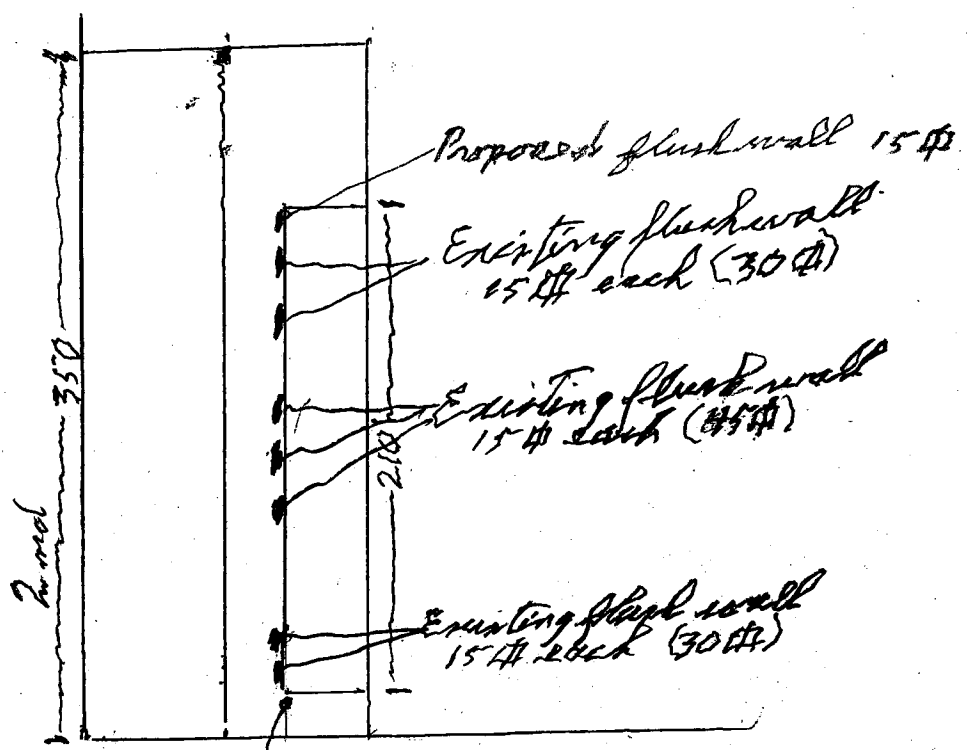 Proposed flush wall 15 ⏍
Existing flush wall
15 ⏍ each (30 ⏍)
Existing flush wall
15 ⏍ each (45 ⏍)
Existing flush wall
15 ⏍ each (30 ⏍)
350
210